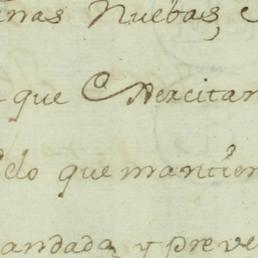 inas Nuebas,
que Exercitan
elo que mantien
andada, y preve